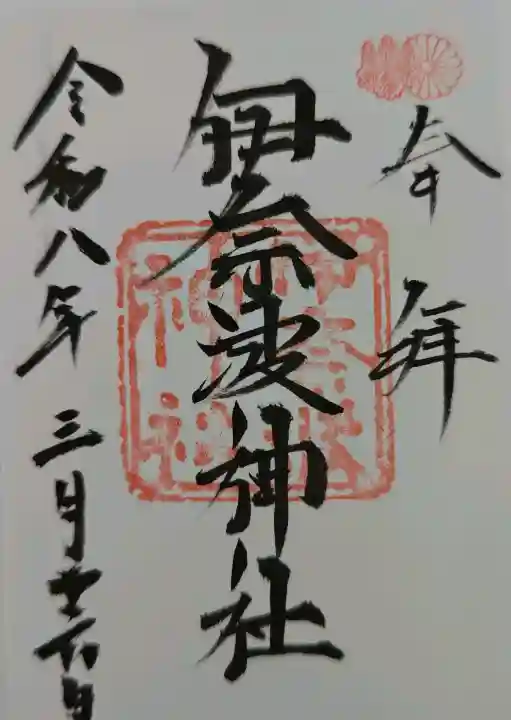 奉拝
伊奈波神社
令和八年三月十六日